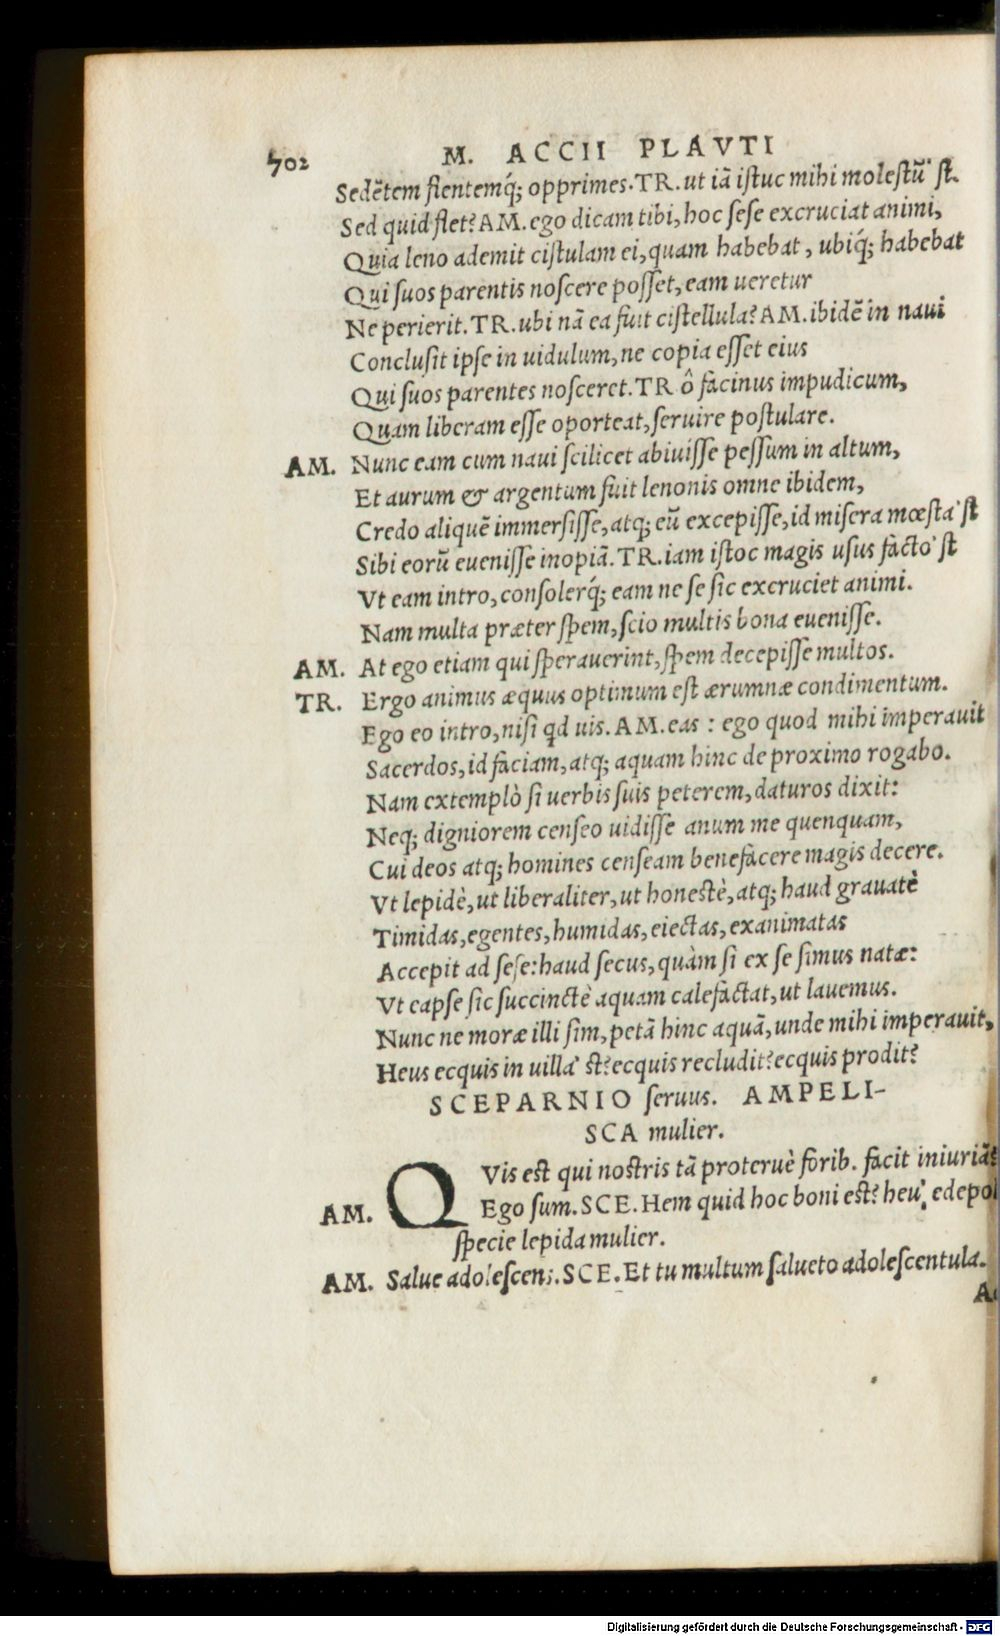 702 M. ACCII PLAVTI
Sedẽtem flentemq́; opprimes. TR. ut iã istuc mihi molestũ' st.
Sed quid flet? AM. ego dicam tibi, hoc sese excruciat animi,
Quia leno ademit cistulam ei, quam habebat, ubiq́; habebat
Qui suos parentis noscere posset, eam ueretur
Ne perierit. TR. ubi nã ea fuit cistellula? AM. ibidẽ in naui
Conclusit ipse in uidulum, ne copia esset eius
Qui suos parentes nosceret. TR ô facinus impudicum,
Quam liberam esse oporteat, seruire postulare.
AM. Nunc eam cum naui scilicet abiuisse pessum in altum,
Et aurum & argentum fuit lenonis omne ibidem,
Credo aliquẽ immersisse, atq; eũ excepisse, id misera mœsta' st
Sibi eorũ euenisse inopiã. TR. iam istoc magis usus facto' st
Vt eam intro, consolerq́; eam ne se sic excruciet animi.
Nam multa præter spem, scio multis bona euenisse.
AM. At ego etiam qui sperauerint, spem decepisse multos.
TR. Ergo animus æquus optimum est ærumnæ condimentum.
Ego eo intro, nisi qd uis. AM. eas : ego quod mihi imperauit
Sacerdos, id faciam, atq; aquam hinc de proximo rogabo.
Nam extemplò si uerbis suis peterem, daturos dixit:
Neq; digniorem censeo uidisse anum me quenquam,
Cui deos atq; homines censeam benefacere magis decere.
Vt lepidè, ut liberaliter, ut honestè, atq; haud grauatè
Timidas, egentes, humidas, eiectas, exanimatas
Accepit ad sese: haud secus, quàm si ex se simus natæ:
Vt eapse sic succinctè aquam calefactat, ut lauemus.
Nunc ne moræ illi sim, petã hinc aquã, unde mihi imperauit,
Heus ecquis in uilla' st? ecquis recludit? ecquis prodit?
SCEPARNIO seruus. AMPELI-
SCA mulier.
QVis est qui nostris tã proteruè forib. facit iniuriã?
AM. Ego sum. SCE. Hem quid hoc boni est? heu, edepol
specie lepida mulier.
AM. Salue adolescens. SCE. Et tu multum salueto adolescentula.
Digitalisierung gefördert durch die Deutsche Forschungsgemeinschaft - DFG